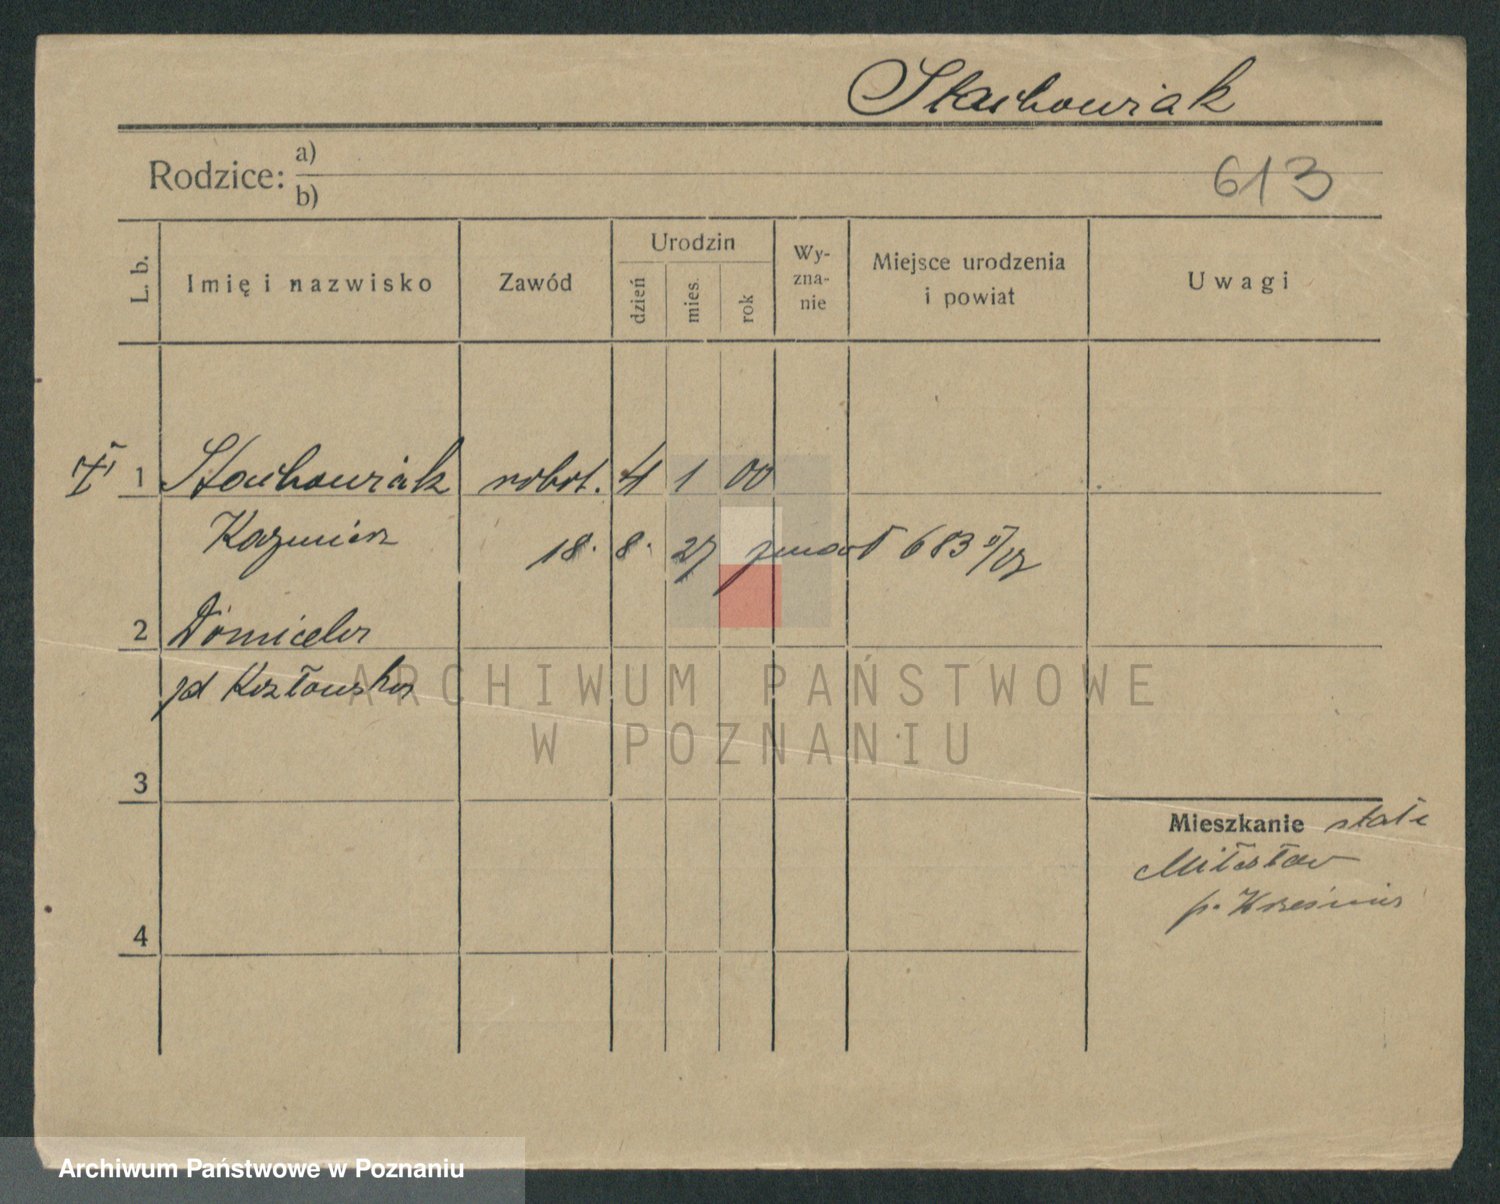 Stachowiak
Rodzice: a)
b)
613
L. b.
Imię i nazwisko
Zawód
Urodzin
dzień
mies.
rok
Wy-
zna-
nie
Miejsce urodzenia
i powiat
Uwagi
1 Stachowiak robot. 4 1 00
Kazmierz 18. 8. 27 zmarł 683
2 Domicela
zd Kozłowska
ARCHIWUM PAŃSTWOWE
W POZNANIU
3
Mieszkanie stałe
Miłosław
p. Września
4
Archiwum Państwowe w Poznaniu